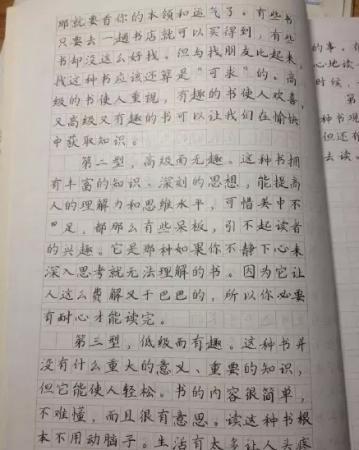 那就要看你的本领和运气了。有些书
只要去一趟书店就可以买得到，有些
书却没这么好找。但与找朋友比起来，
找这种书应该还算是“可求”的。高
级的书使人重视，有趣的书使人欢喜，
又高级又有趣的书可以让我们在愉快
中获取知识。
第二型，高级而无趣。这种书拥
有丰富的知识、深刻的思想，能提高
人的理解力和思维水平，可惜美中不
足，都那么有些呆板，引不起读者
的兴趣。它是那种如果你不静下心来
深入思考就无法理解的书。因为它让
人这么费解又干巴巴的，所以你必要
有耐心才能读完。
第三型，低级而有趣。这种书并
没有什么重大的意义、重要的知识，
但它能使人轻松。书的内容很简单，
不难懂，而且很有意思。读这种书根
本不用动脑子。生活有太多让人头疼
的事，你
心地读
时候，
第
种书观
但还有
去读